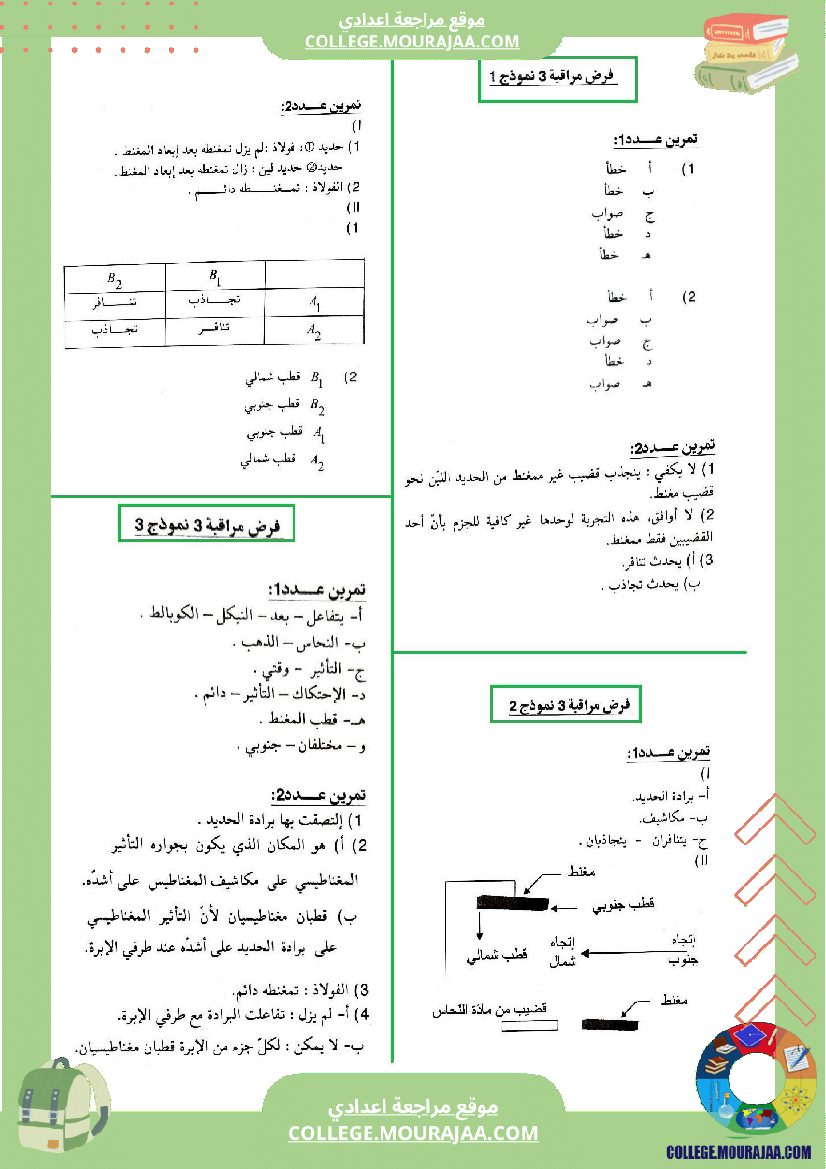 موقع مراجعة اعدادي
COLLEGE.MOURAJAA.COM
فرض مراقبة 3 نموذج 1
تمرين عـــدد1:
1) أ خطأ
ب خطأ
ج صواب
د خطأ
هـ خطأ
2) أ خطأ
ب صواب
ج صواب
د خطأ
هـ صواب
تمرين عـــدد2:
1) لا يكفي : ينجذب قضيب غير ممغنط من الحديد الليّن نحو
قضيب مغنط.
2) لا أوافق، هذه التجربة لوحدها غير كافية للجزم بأنّ أحد
القضيبين فقط ممغنط.
3) أ) يحدث تنافر.
ب) يحدث تجاذب .
فرض مراقبة 3 نموذج 2
تمرين عـــدد1:
I)
أ- برادة الحديد.
ب- مكاشيف.
ج- يتنافران - يتجاذبان .
II)
مغنط
قطب جنوبي
قطب شمالي
إتجاه شمال
إتجاه جنوب
مغنط
قضيب من مادّة النّحاس
تمرين عـــدد2:
I)
1) حديد ①: فولاذ :لم يزل تمغنطه بعد إبعاد المغنط .
حديد② حديد لين : زال تمغنطه بعد إبعاد المغنط.
2) الفولاذ : تمـغنـــــطه دائـــــم .
II)
1)
B1 B2
A1 تجـــاذب تنـــــافر
A2 تنافـــر تجـــاذب
2) B1 قطب شمالي
B2 قطب جنوبي
A1 قطب جنوبي
A2 قطب شمالي
فرض مراقبة 3 نموذج 3
تمرين عـــدد1:
أ- يتفاعل – بعد – النيكل – الكوبالط .
ب- النحاس – الذهب .
ج- التأثير - وقتي .
د- الإحتكاك – التأثير – دائم .
هـ- قطب المغنط .
و – مختلفان – جنوبي .
تمرين عـــدد2:
1) إلتصقت بها برادة الحديد .
2) أ) هو المكان الذي يكون بجواره التأثير
المغناطيسي على مكاشيف المغناطيس على أشدّه.
ب) قطبان مغناطيسيان لأنّ التأثير المغناطيسي
على برادة الحديد على أشدّه عند طرفي الإبرة.
3) الفولاذ : تمغنطه دائم.
4) أ- لم يزل : تفاعلت البرادة مع طرفي الإبرة.
ب- لا يمكن : لكلّ جزء من الإبرة قطبان مغناطيسيان.
موقع مراجعة اعدادي
COLLEGE.MOURAJAA.COM
COLLEGE.MOURAJAA.COM